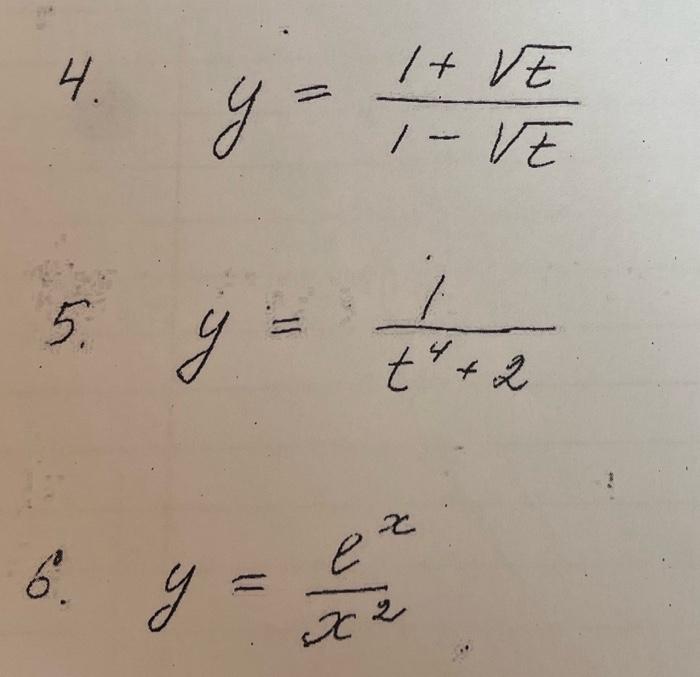 4. y = (1 + √t) / (1 - √t)
5. y = 1 / (t⁴ + 2)
6. y = eˣ / x²